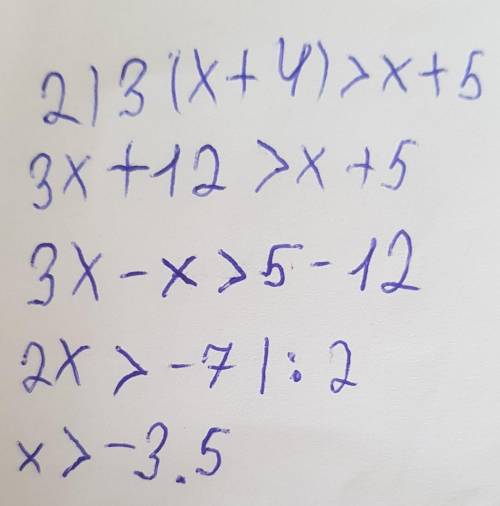 2) 3(x+4)>x+5
3x+12>x+5
3x-x>5-12
2x>-7|:2
x>-3.5